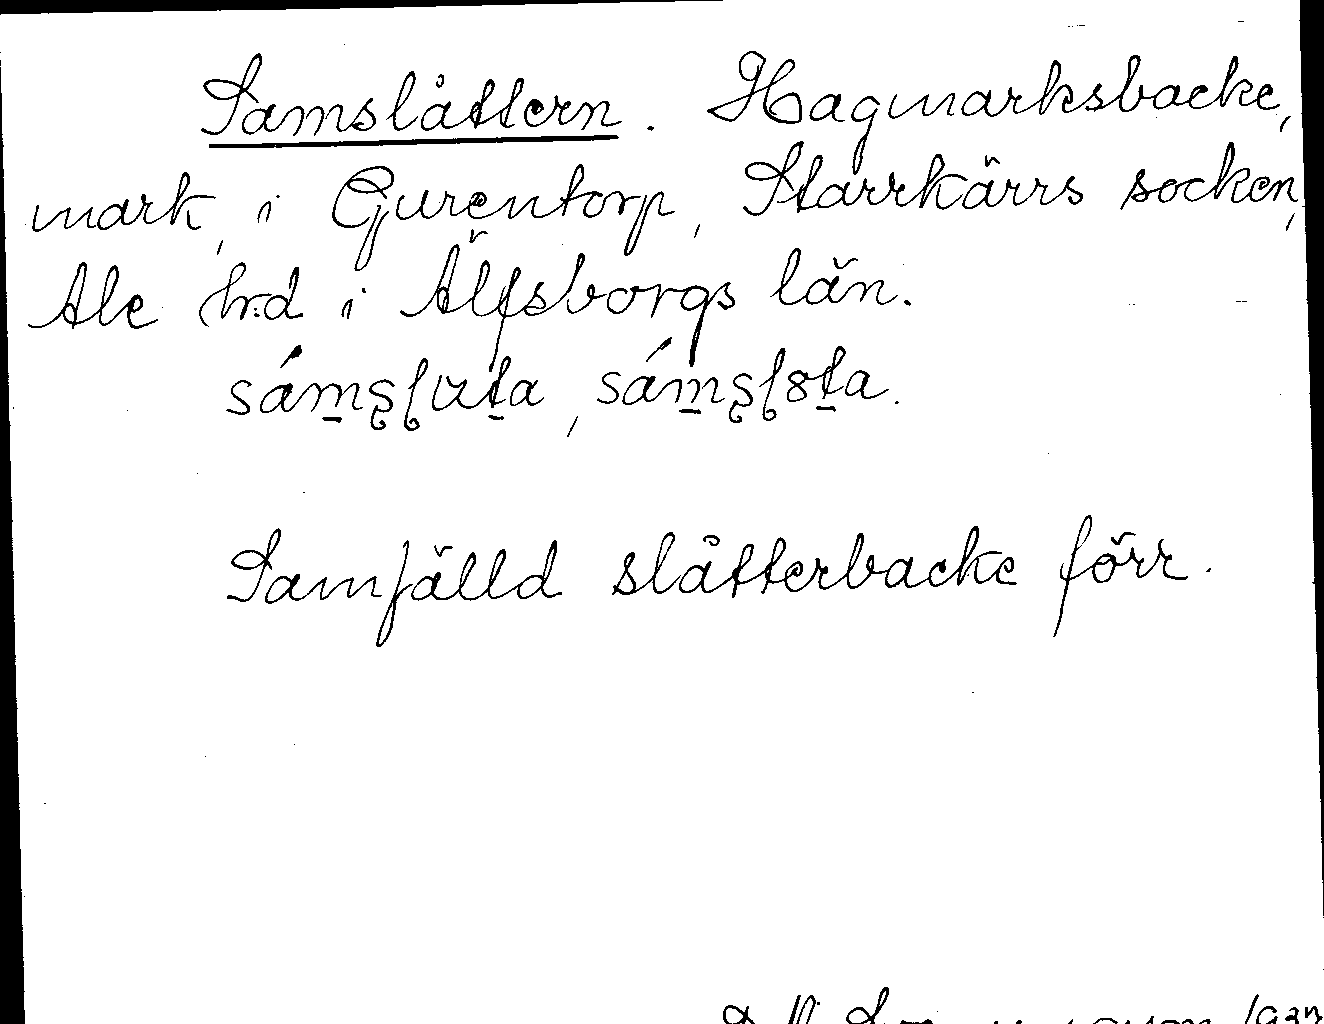 Samslåttern. Hagmarksbacke,
mark, i Gurentorp, Starrkärrs socken,
Ale hd i Älfsborgs län.
Samfälld slåtterbacke förr.